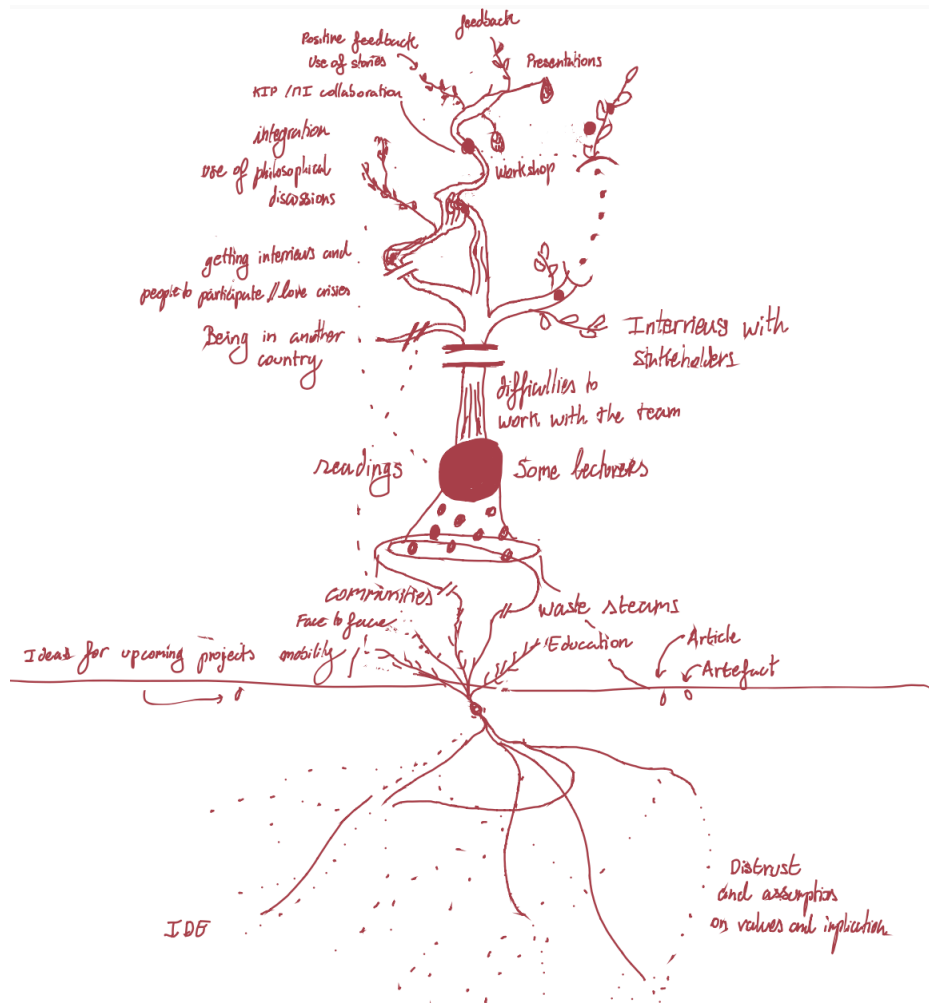 feedback
Positive feedback
Use of stories
Presentations
KIP / MI collaboration
integration
Use of philosophical
discussions
Workshop
getting interviews and
people to participate // love crisies
Being in another
country
Interviews with
stakeholders
difficulties to
work with the team
readings
Some lecturers
communities
waste steams
Face to face
mobility
Education
Article
Artefact
Ideas for upcoming projects
Distrust
and assumption
on values and implication
IDE